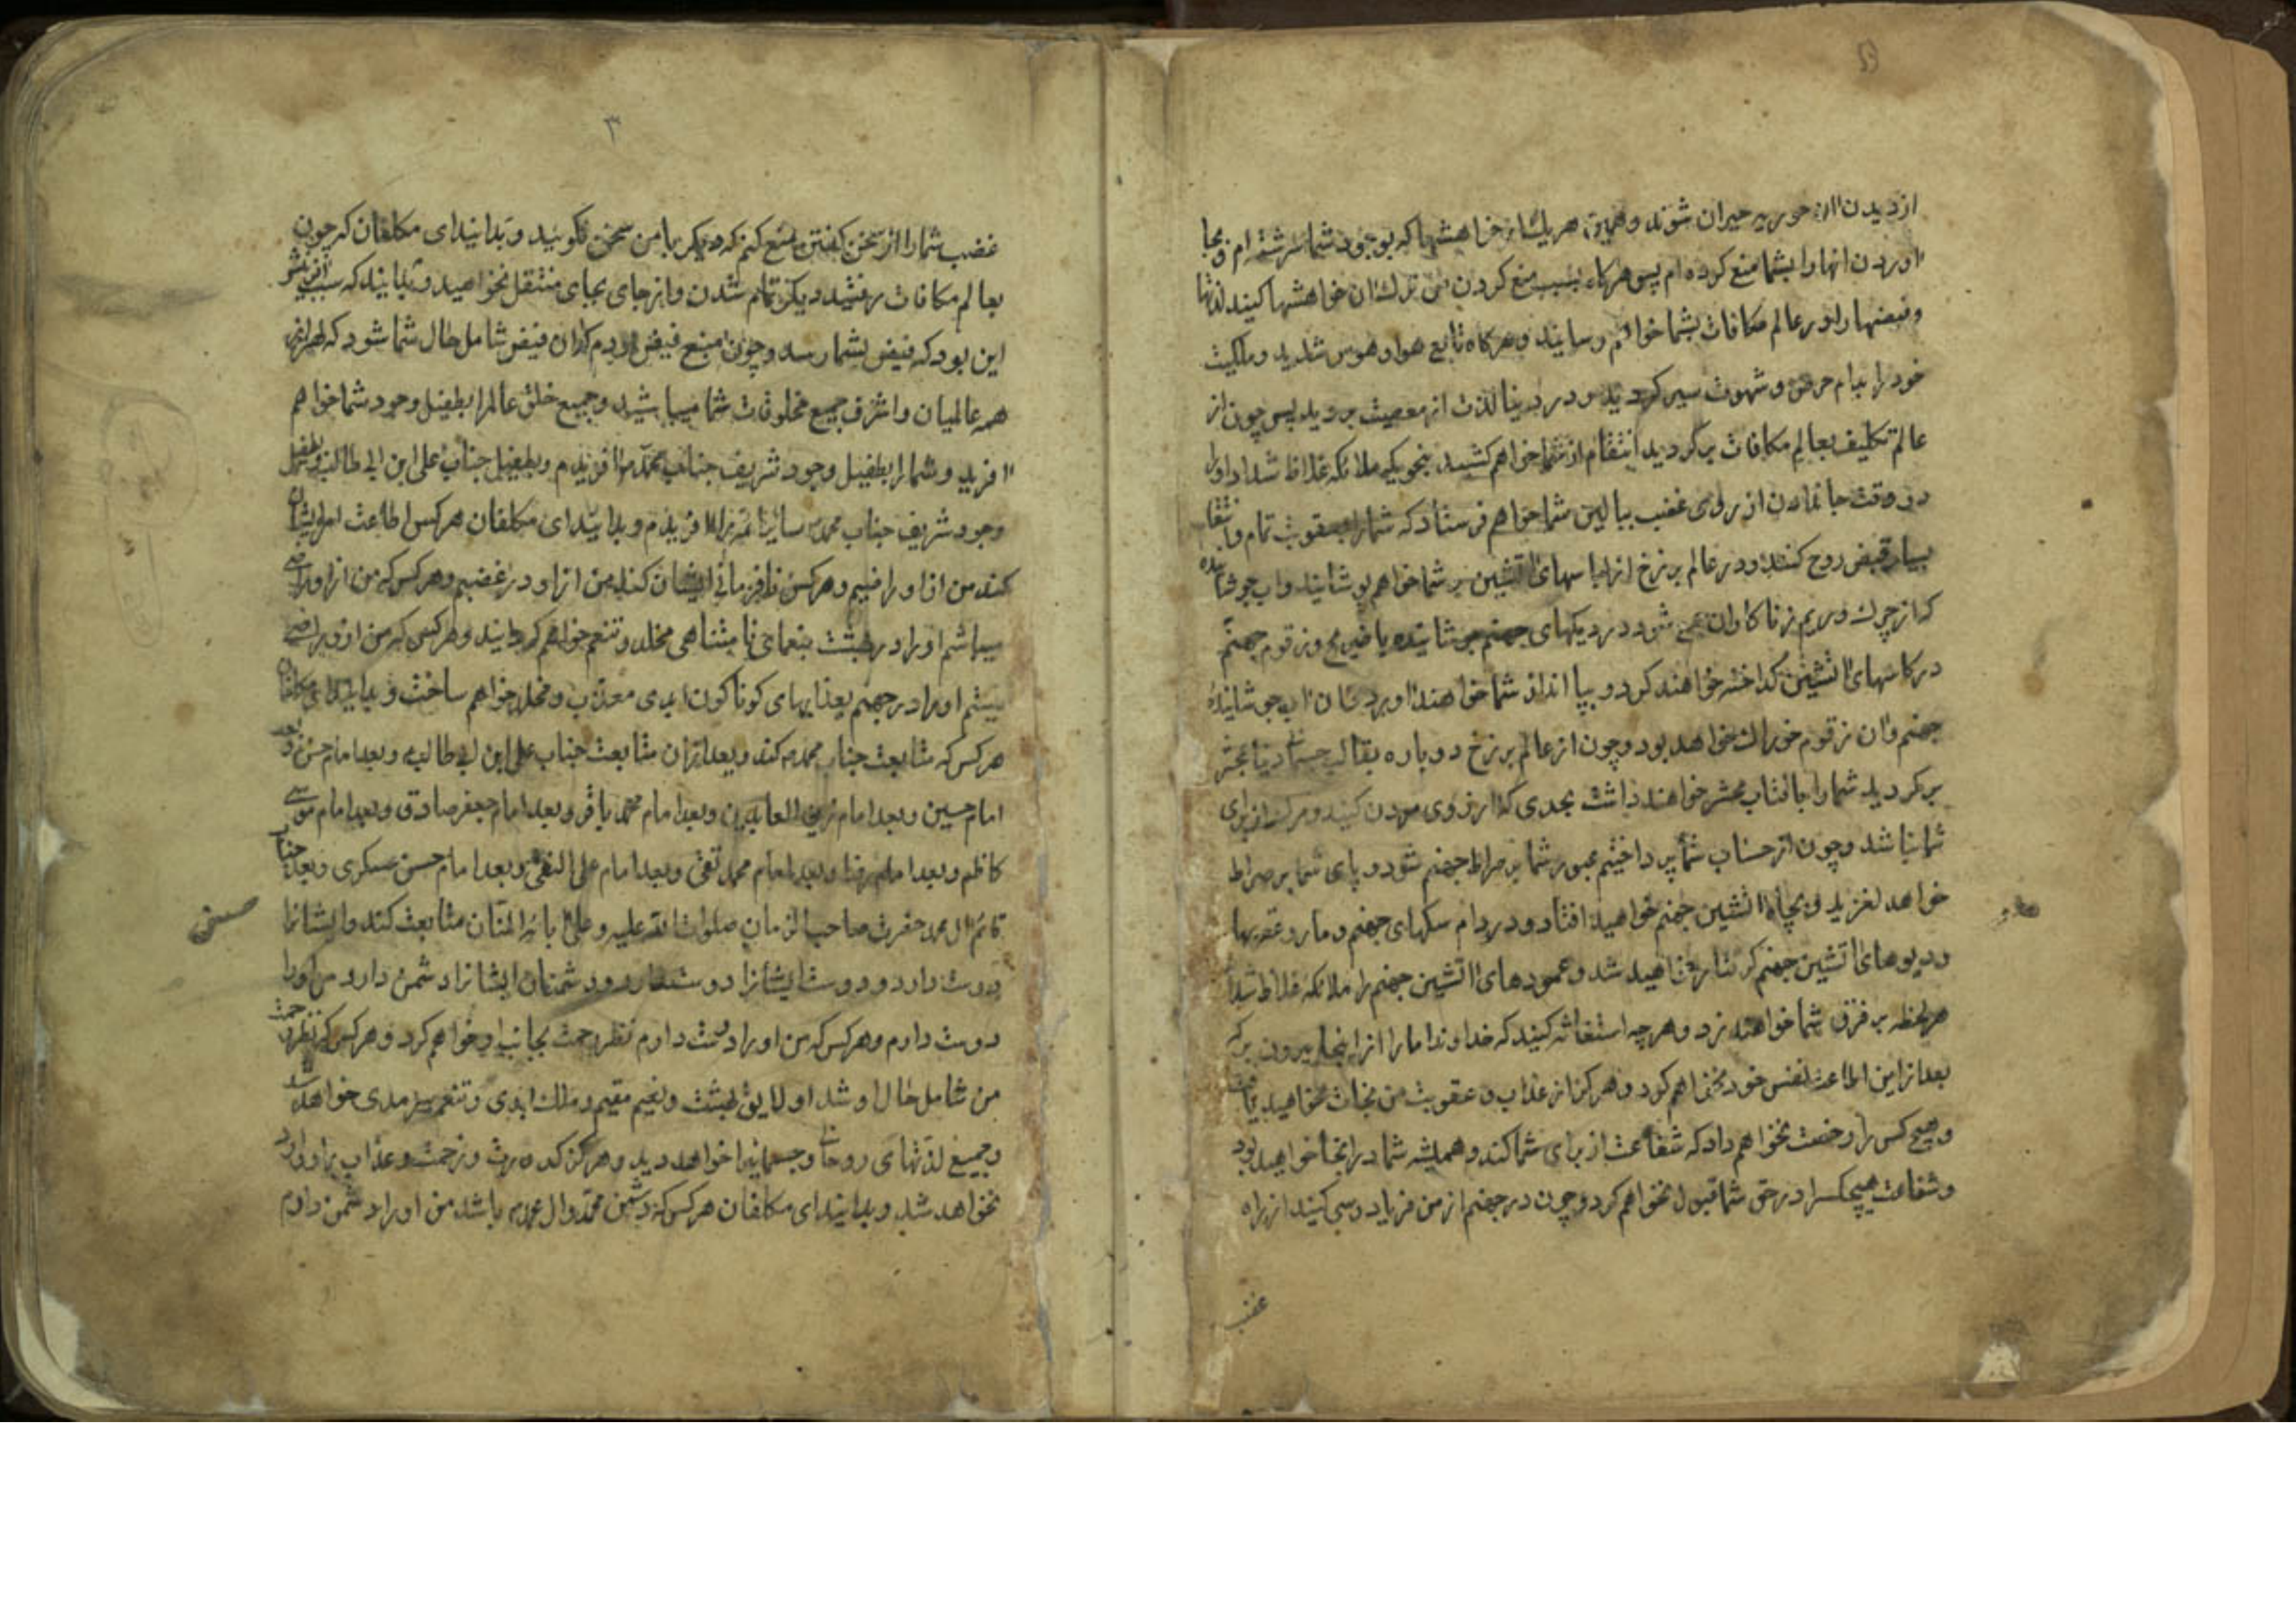 از دیدن آن حوریه حیران شوند و همچنین هر یک از خواهشها که بوجود شما سرشته ام و بجا
آوردن آنها را بشما منع کرده ام پس هرگاه بسبب منع کردن من ترک آن خواهشها کنید لذتها
و فیضها را در عالم مکافات بشما خواهم رسانید و هرکاه تابع هوا و هوس شدید و ملکیت
خود را بدام حرص و شهوت سیر کردید و در دنیا لذت از معصیت بردید پس چون از
عالم تکلیف بعالم مکافات برکردید انتقام از شما خواهم کشید بنحویکه ملائکه غلاظ شداد را
در وقت جاندادن از روی غضب ببالین شما خواهم فرستاد که شما را بعقوبت تمام و انتقام
بسیار قبض روح کنند و در عالم برزخ از لباسهای آتشین بر شما خواهم پوشانید و اب جوشانیده
که از چرک و ریم زناکاران جمع شود در دیکهای جهنم جوشانیده با ضریع و زقوم جهنم
در کاسهای آتشین کداخته خواهند کرد و بپا انداز شما خواهند اورد و ان اب جوشانیدهٔ
جهنم وان زقوم خوراک خواهد بود و چون از عالم برزخ دوباره بقالب جسمانی بمحشر
برکردید شما را بافتاب محشر خواهند داشت بحدی که ارزوی مردن کنید و مرک از برای
شما نباشد و چون از حساب شما پرداختیم عبور شما بر صراط جهنم شود و پای شما بر صراط
خواهد لغزید و بچاه آتشین جهنم خواهید افتاد و در دام سکهای جهنم و مار و عقربها
و دیوهای آتشین جهنم کرفتار خواهید شد و عمودهای آتشین جهنم را ملائکه غلاظ شداد
هر لحظه بر فرق شما خواهند زد و هر چه استغاثه کنید که خداوندا ما را از اینجا بیرون بر که
بعد از این اطاعت نفس خود نخواهم کرد و هرکز از عذاب و عقوبت من نجات نخواهید یافت
و هیچ کس را رخصت نخواهم داد که شفاعت از برای شما کند و همیشه شما در انجا خواهید بود
و شفاعت هیچکس را در حق شما قبول نخواهم کرد و چون در جهنم از من فریاد رسی کنید از راه
غضب
۳
غضب شما را از سخن کفتن منع کنم که دیکر با من سخن نکویید و بدانید ای مکلفان که چون
بعالم مکافات رفتید دیکر تمام شدن و از جای بجای منتقل نخواهید و بدانید که سبب آفرینش
این بود که فیض بشما رسد و چون منبع فیض بودم که ان فیض شامل حال شما شود که
همه عالمیان و اشرف جمیع مخلوقات شما میباشید و جمیع خلق عالم را بطفیل وجود شما خواهم
آفرید و شما را بطفیل وجود شریف جناب محمد افریدم و بطفیل جناب علی ابن ابی طالب و بطفیل
وجود شریف جناب محمد سایر ائمه را افریدم و بدانید ای مکلفان هر کس اطاعت امر ایشان
کند من از او راضیم و هر کس نافرمانی ایشان کند من از او در غضبم و هر کس که من از او راضی
میباشم او را در بهشت بنعمای نامتناهی مخلد و متنعم خواهم کردانید و هر کس که من از او راضی
نیستم او را در جهنم بعذابهای کوناکون ابدی معذب و مخلد خواهم ساخت و بدانید ای مکلفان
هر کس که متابعت جناب محمد کند و بعد از ان متابعت جناب علی ابن ابی طالب و بعد امام حسن و بعد
امام حسین و بعد امام زین العابدین و بعد امام محمد باقر و بعد امام جعفر صادق و بعد امام موسی
کاظم و بعد امام رضا و بعد امام محمد تقی و بعد امام علی النقی و بعد امام حسن عسکری و بعد جناب
قائم ال محمد حضرت صاحب الزمان صلوات الله علیه و علی ابائه المنان متابعت کند و ایشانرا
دوست دارد و دوست ایشانرا دوست دارد و دشمنان ایشانرا دشمن دارد من او را
دوست دارم و هر کس که من او را دوست دارم نظر رحمت بجانب او خواهم کرد و هر کس که نظر رحمت
من شامل حال او شد او لایق بهشت و نعیم مقیم و ملک ابدی و تنعم سرمدی خواهد شد
و جمیع لذتهای روحانی و جسمانیرا خواهد دید و هرکز کدورت و زحمت و عذاب بر او وارد
نخواهد شد و بدانید ای مکلفان هر کس که دشمن محمد و ال محمد باشد من او را دشمن دارم